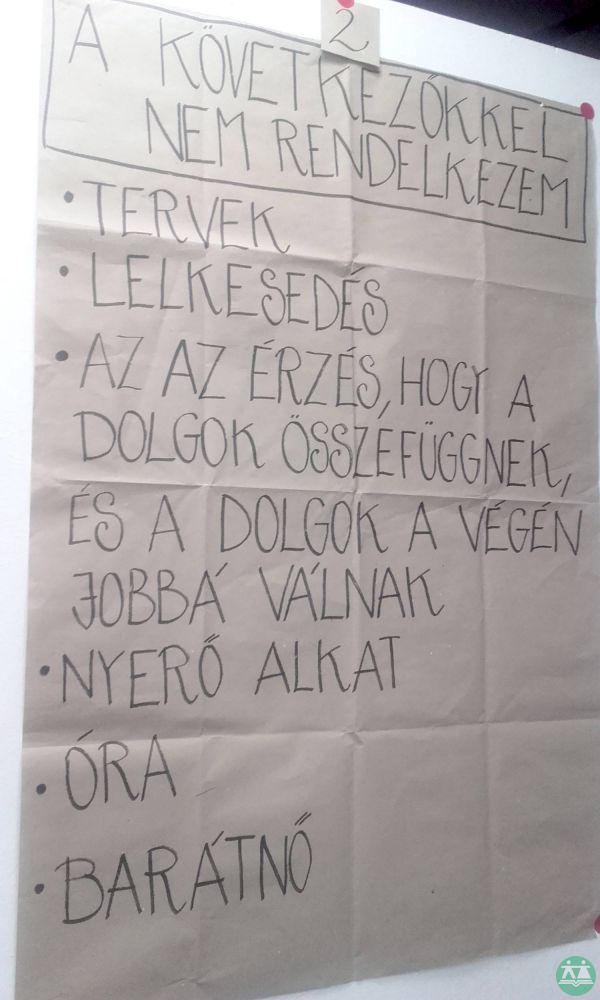 2
A KÖVETKEZŐKKEL
NEM RENDELKEZEM
• TERVEK
• LELKESEDÉS
• AZ AZ ÉRZÉS, HOGY A
DOLGOK ÖSSZEFÜGGNEK,
ÉS A DOLGOK A VÉGÉN
JOBBÁ VÁLNAK
• NYERŐ ALKAT
• ÓRA
• BARÁTNŐ